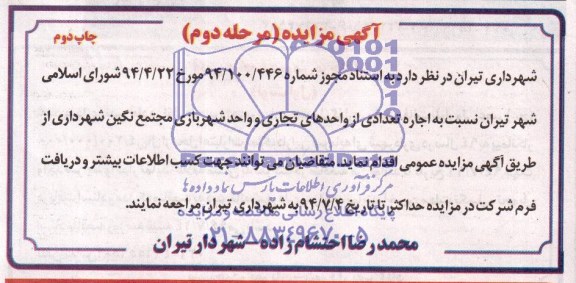 آگهی مزایده (مرحله دوم)
چاپ دوم
شهرداری تیران در نظر دارد به استناد مجوز شماره ۹۴/۱۰۰/۴۴۶ مورخ ۹۴/۴/۲۲ شورای اسلامی
شهر تیران نسبت به اجاره تعدادی از واحدهای تجاری و واحد شهربازی مجتمع نگین شهرداری از
طریق آگهی مزایده عمومی اقدام نماید. متقاضیان می توانند جهت کسب اطلاعات بیشتر و دریافت
مرکز فرآوری اطلاعات پارس ماد داده ها
فرم شرکت در مزایده حداکثر تا تاریخ ۹۴/۷/۴ به شهرداری تیران مراجعه نمایند.
پایگاه اطلاع رسانی مناقصه و مزایده
۰۲۱-۸۸۳۴۹۶۷۰-۵
محمدرضا احتشام زاده - شهردار تیران